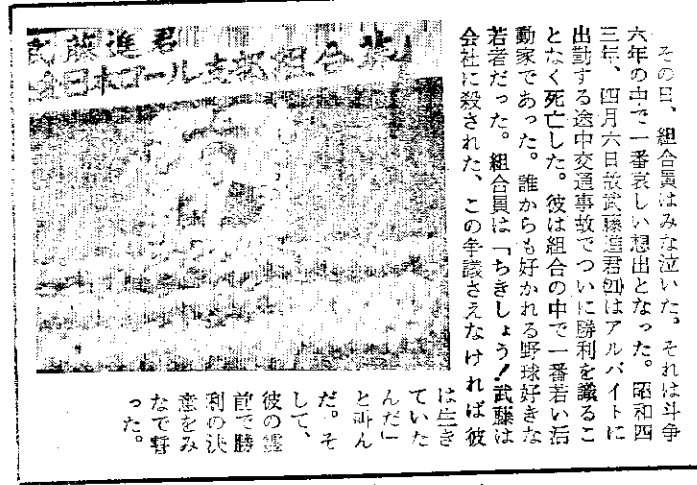 武藤進君
全日本ロール支部組合葬
その日、組合員はみな泣いた。それは斗争
六年の中で一番哀しい想出となった。昭和四
三年、四月六日故武藤進君(21)はアルバイトに
出勤する途中交通事故でついに勝利を議るこ
となく死亡した。彼は組合の中で一番若い活
動家であった。誰からも好かれる野球好きな
若者だった。組合員は「ちきしょう!武藤は
会社に殺された、この争議さえなければ彼
は生き
ていた
んだ」
と叫ん
だ。そ
して、
彼の霊
前で勝
利の決
意をみ
なで誓
った。